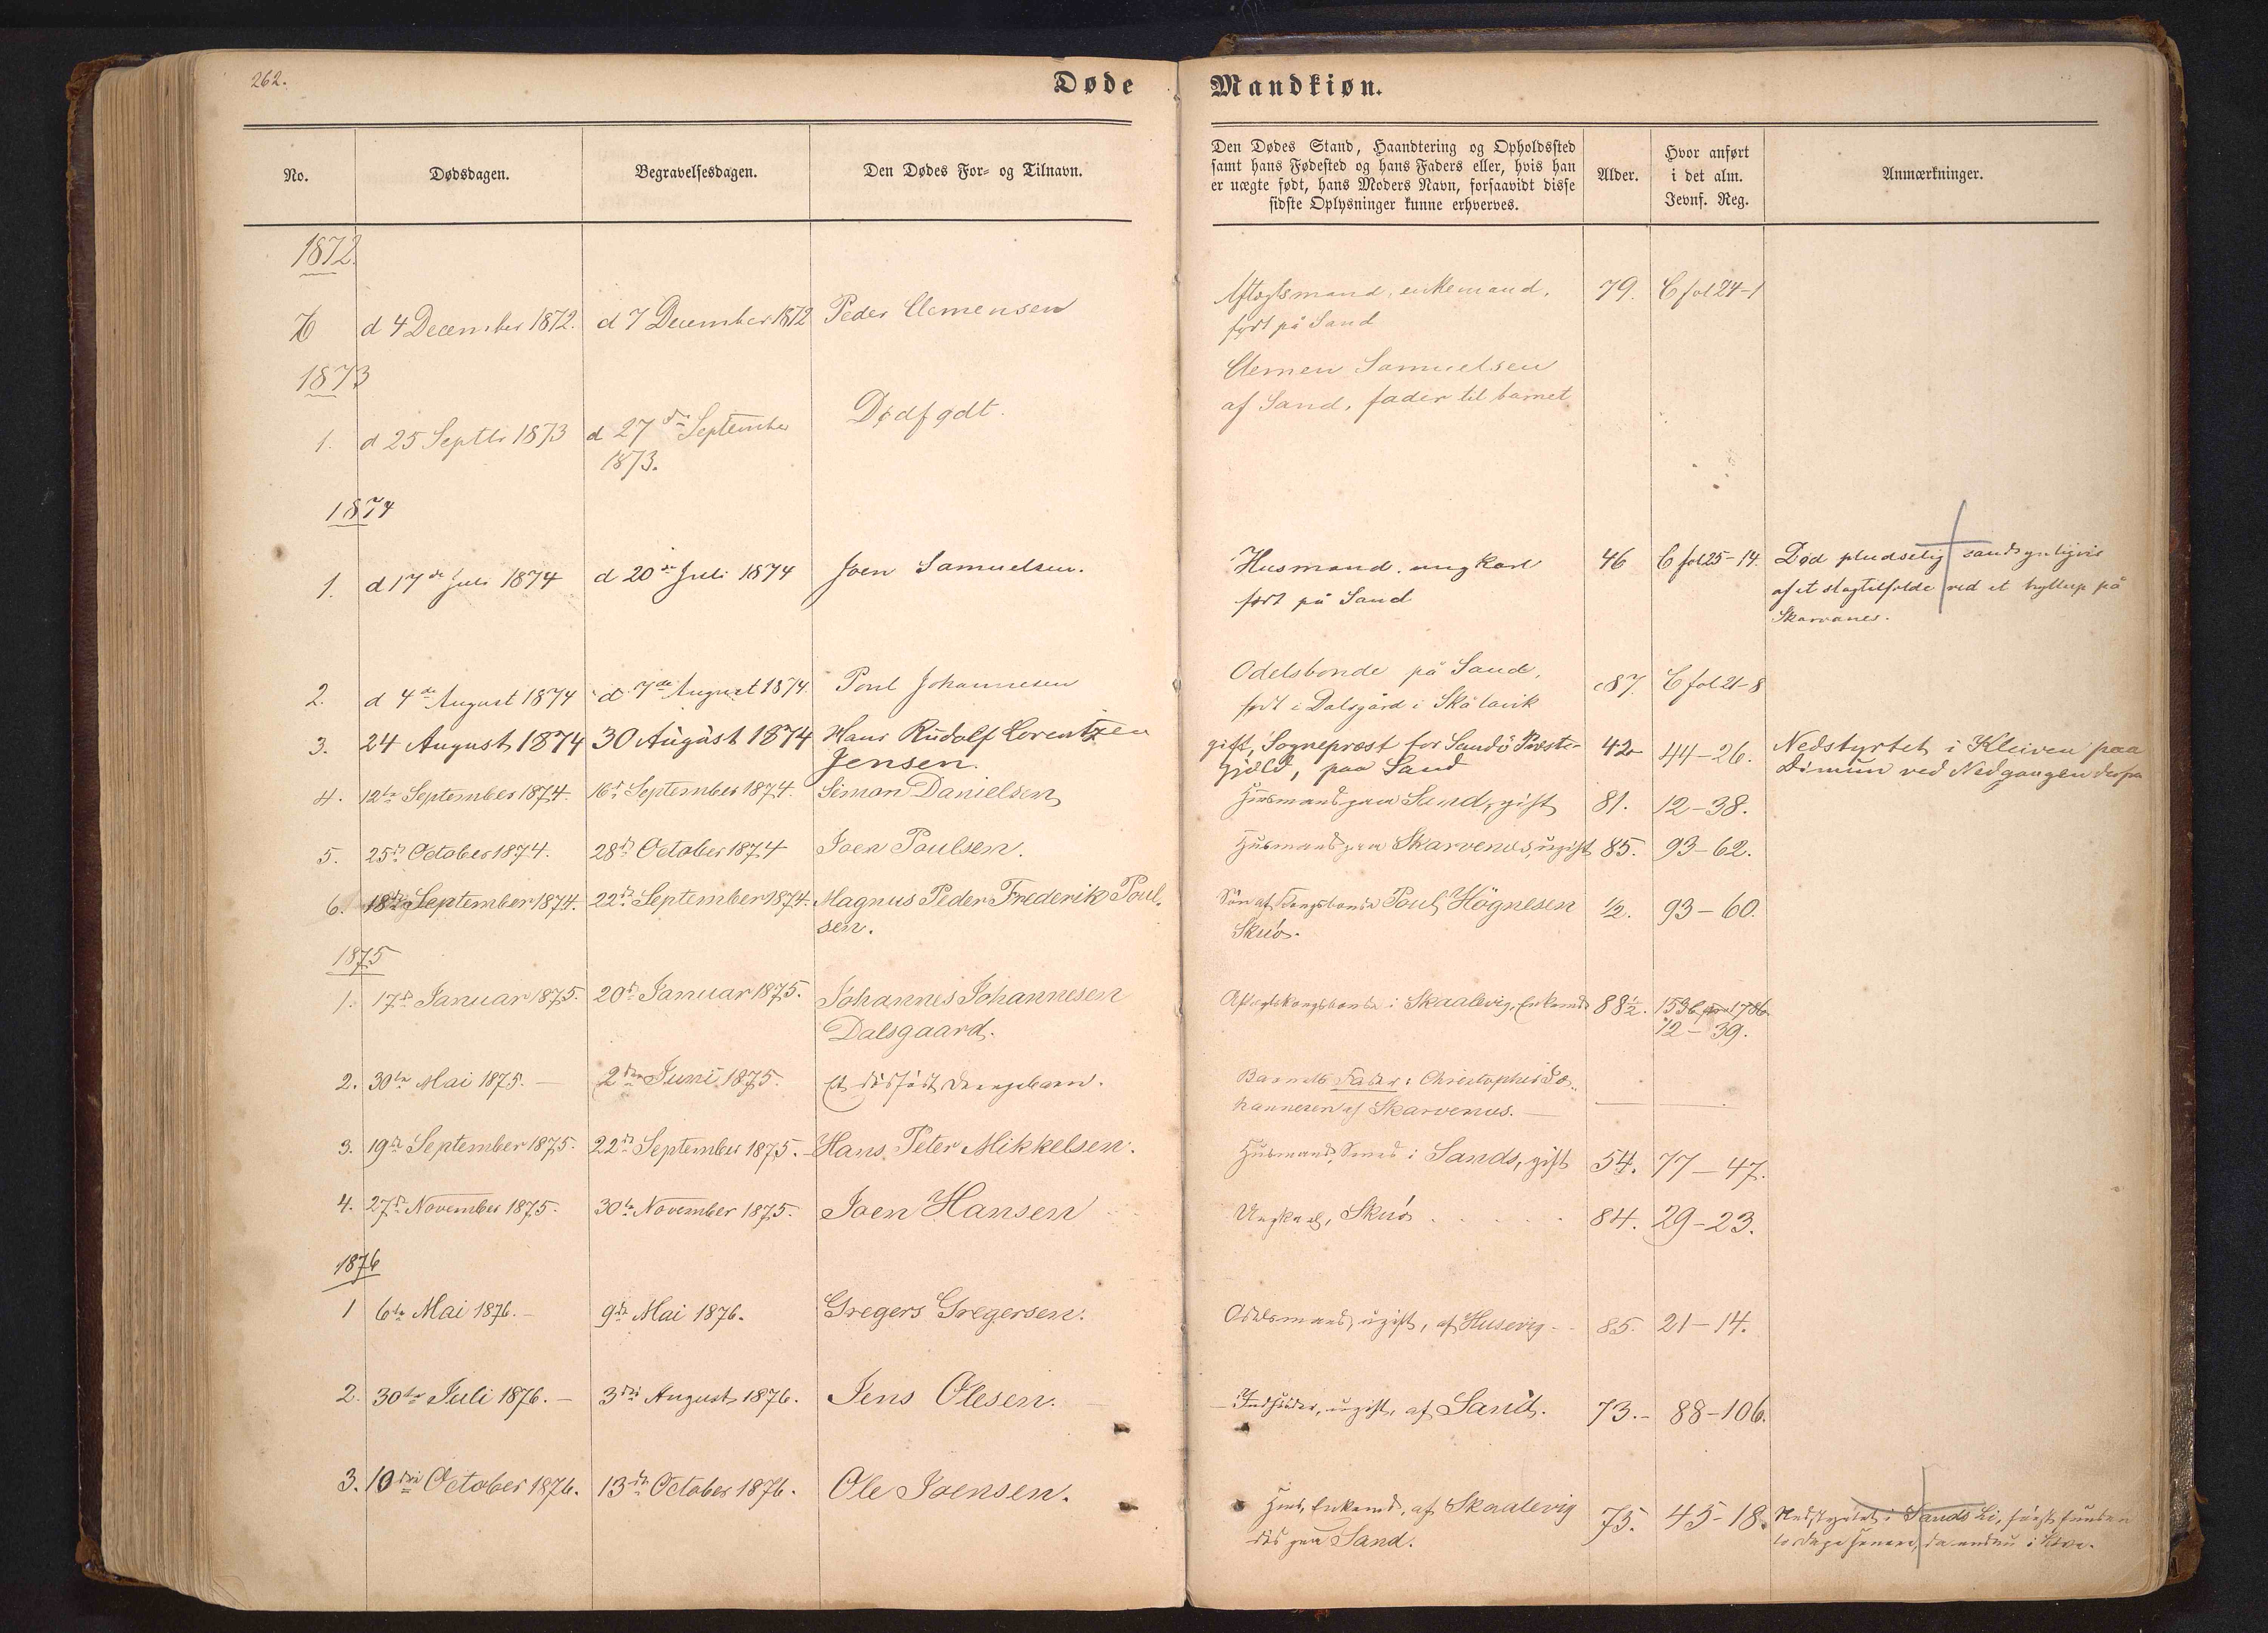 262.
Døde Mandkiøn.
No.
Dødsdagen.
Begravelsesdagen.
Den Dødes For- og Tilnavn.
Den Dødes Stand, Haandtering og Opholdssted
samt hans Fødested og hans Faders eller, hvis han
er uægte født, hans Moders Navn, forsaavidt disse
sidste Oplysninger kunne erhverves.
Alder.
Hvor anført
i det alm.
Jevnf. Reg.
Anmærkninger.
1872.
d 4 December 1872. d 7 December 1872 Peder Clemensen
Aftægtsmand, enkemand, 79. C fol 24-1
født på Sand
1873
Clemen Samuelsen
af Sand, fader til barnet
1. d 25 Septbr 1873 d 27de September Dødfødt.
1873.
1874
1. d 17de Juli 1874 d 20de Juli 1874 Joen Samuelsen.
Husmand, ungkarl 46 C fol 25-14. Død pludselig sandsynligvis
født på Sand af et slagtilfælde ved et bryllup på
Skarvanes.
2. d 4de August 1874 d. 7de August 1874. Poul Johannesen
Odelsbonde på Sand, 87. C fol 21-8
født i Dalsgård i Skålavik
3. 24 August 1874 30 August 1874 Hans Rudolf Lorentzen
Jensen.
gift, Sognepræst for Sandø Præste- 42 44-26. Nedstyrtet i Kleiven paa
gjæld, paa Sand Dimun ved Nedgangen derfra
4. 12te September 1874. 16de September 1874. Simon Danielsen
Husmand paa Sand, gift 81. 12-38.
5. 25de October 1874. 28de October 1874 Joen Poulsen.
Husmand paa Skarvenæs, ugift 85. 93-62.
6. 18de September 1874. 22de September 1874. Magnus Peder Frederik Poul-
sen.
Søn af Kongsbonde Poul Högnesen 1/2. 93-60.
Skuø.
1875
1. 17de Januar 1875. 20de Januar 1875. Johannes Johannesen
Dalsgaard.
Aftægtskongsbonde i Skaalevig, Enkemd 88 1/2.
12-39.
2. 30te Mai 1875. – 2den Juni 1875. Et dødfødt Drengebarn.
Barnets Fader: Christopher Jo-
hannesen af Skarvenæs. –
3. 19de September 1875. 22de September 1875. – Hans Peter Mikkelsen.
Husmand, i Sands, gift 54. 77-47.
4. 27de November 1875. 30te November 1875. Joen Hansen
Ungkarl, Skuø 84. 29-23.
1876
1 6te Mai 1876. – 9de Mai 1876. Gregers Gregersen.
Odelsmand, ugift, af Husevig – 85. 21-14.
2. 30te Juli 1876. – 3die August 1876. Jens Olesen.
– Indsidder, ugift, af Sand. 73. – 88-106.
3. 10de October 1876. 13de October 1876. Ole Joensen.
Husmd, Enkemd, af Skaalevig 75. 45-18. Nedstyrtet i Sands Li, først funden
død paa Sand. to Dage senere, da endnu i Live.